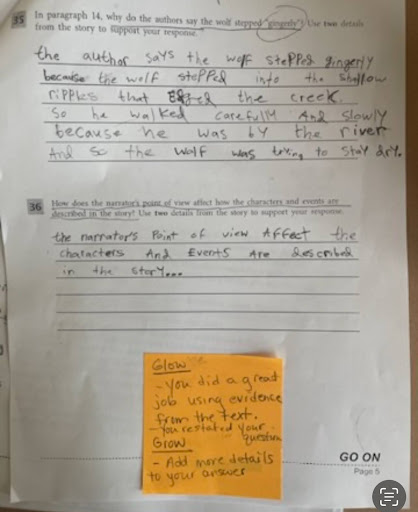 35 In paragraph 14, why do the authors say the wolf stepped "gingerly"? Use two details
from the story to support your response.
the author says the wolf stepped gingerly
because the wolf stepped into the shallow
ripples that Edged the creek.
So he walked carefully And slowly
because he was by the river
And so the wolf was trying to stay dry.
36 How does the narrator's point of view affect how the characters and events are
described in the story? Use two details from the story to support your response.
the narrator's Point of view Affect the
characters And Events Are described
in the story...
Glow
- You did a great
job using evidence
from the text.
- You restated your
question
Grow
- Add more details
to your answer
GO ON
Page 5